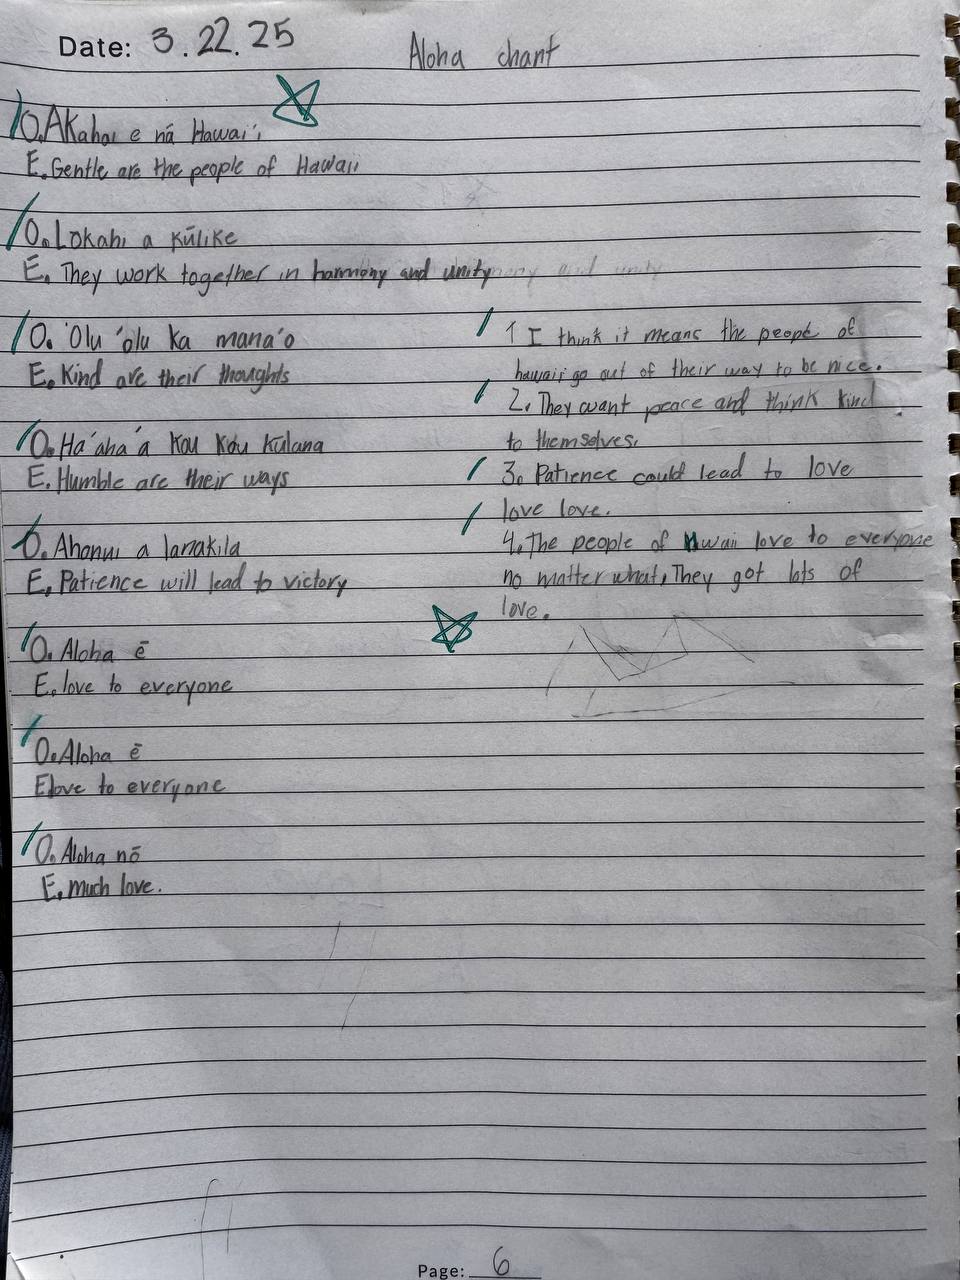 Date: 3.22.25
Aloha chant
O. AKahai e nā Hawai'i
E. Gentle are the people of Hawaii
O. Lokahi a Kūlike
E. They work together in harmony and unity
O. 'Olu 'olu Ka mana'o
E. Kind are their thoughts
O. Ha'aha'a Kou Kou Kūlana
E. Humble are their ways
O. Ahonui a lanakila
E. Patience will lead to victory
O. Aloha ē
E. love to everyone
O. Aloha ē
E love to everyone
O. Aloha nō
E. much love.
1 I think it means the peope of
hawaii go out of their way to be nice.
2. They want peace and think kind
to themselves.
3. Patience could lead to love
love love.
4. The people of Hwaii love to everyone
no matter what, They got lots of
love.
Page: 6